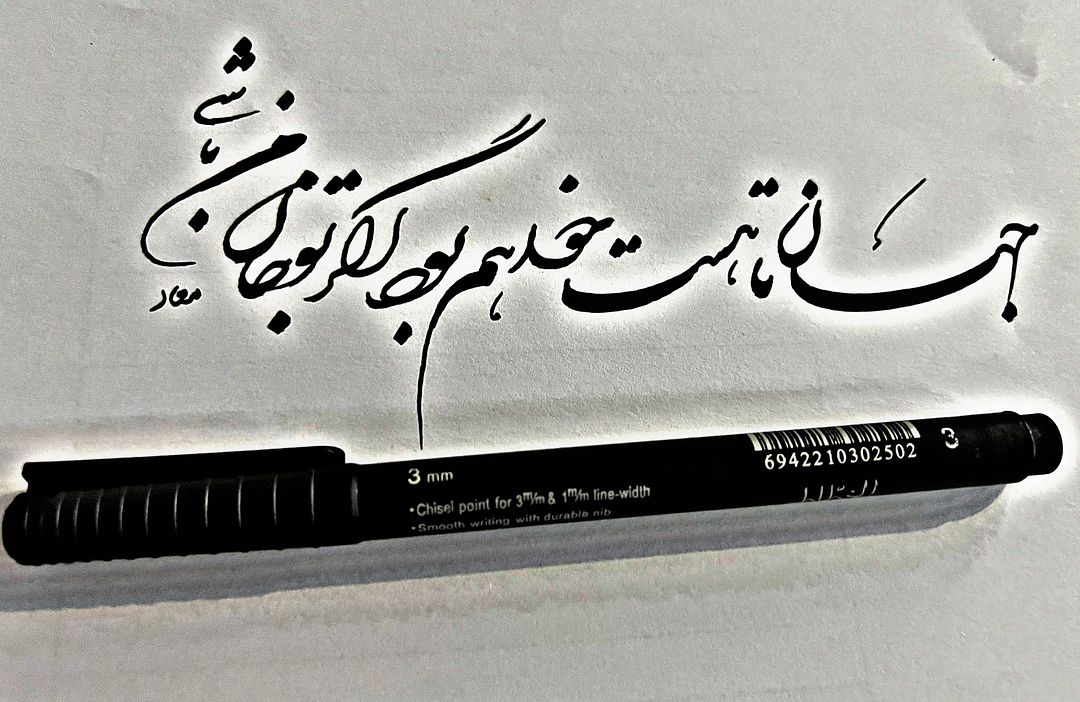 جهان تا هست خواهم بود اگر تو جان من باشی
3 mm
•Chisel point for 3m/m & 1m/m line-width
•Smooth writing with durable nib
6942210302502
3